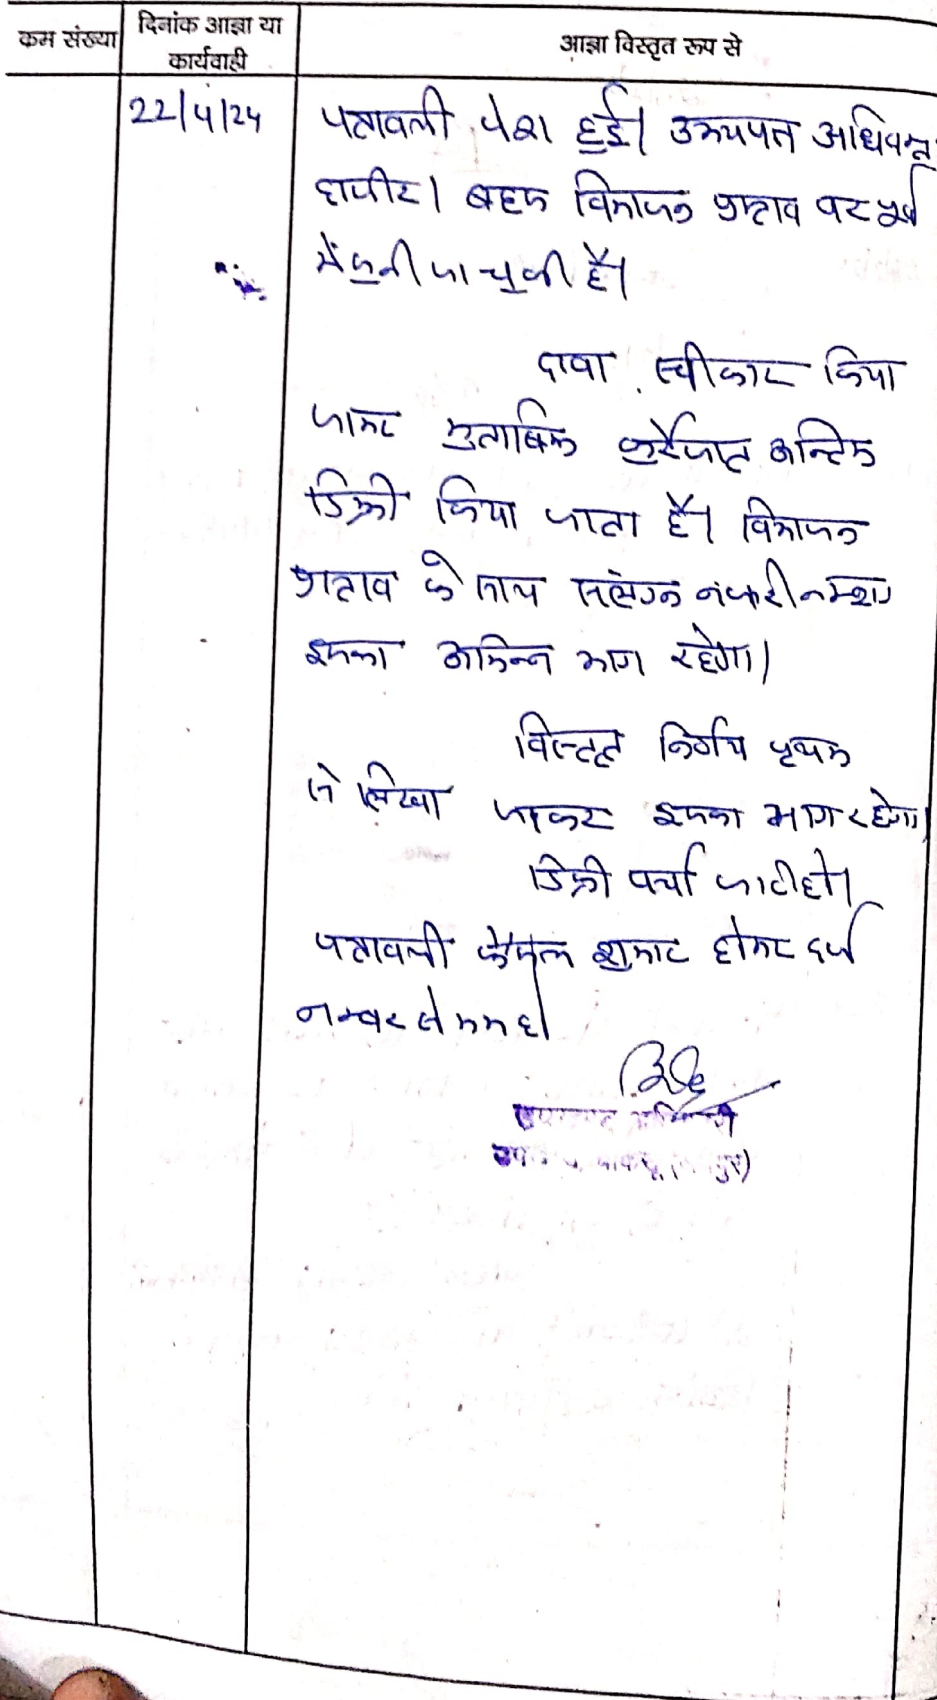 कम संख्या
दिनांक आज्ञा या
कार्यवाही
आज्ञा विस्तृत रूप से
22/4/24
पत्रावली पेश हुई। उभयपक्ष अधिवक्ता
हाजीर। बहस विभाजन प्रस्ताव पर पूर्व
में सुनी जा चुकी है।
दावा स्वीकार किया
जाकर मुताबिक कुर्रेजात अन्तिम
डिक्री किया जाता है। विभाजन
प्रस्ताव के साथ संलग्न नजरी नक्शा
इसका अभिन्न भाग रहेगा।
विस्तृत निर्णय पृथक
से लिखा जाकर इसका भाग रहेगा।
डिक्री पर्चा जारी हो।
पत्रावली फैसल शुमार होकर दर्ज
नम्बर से कम हो